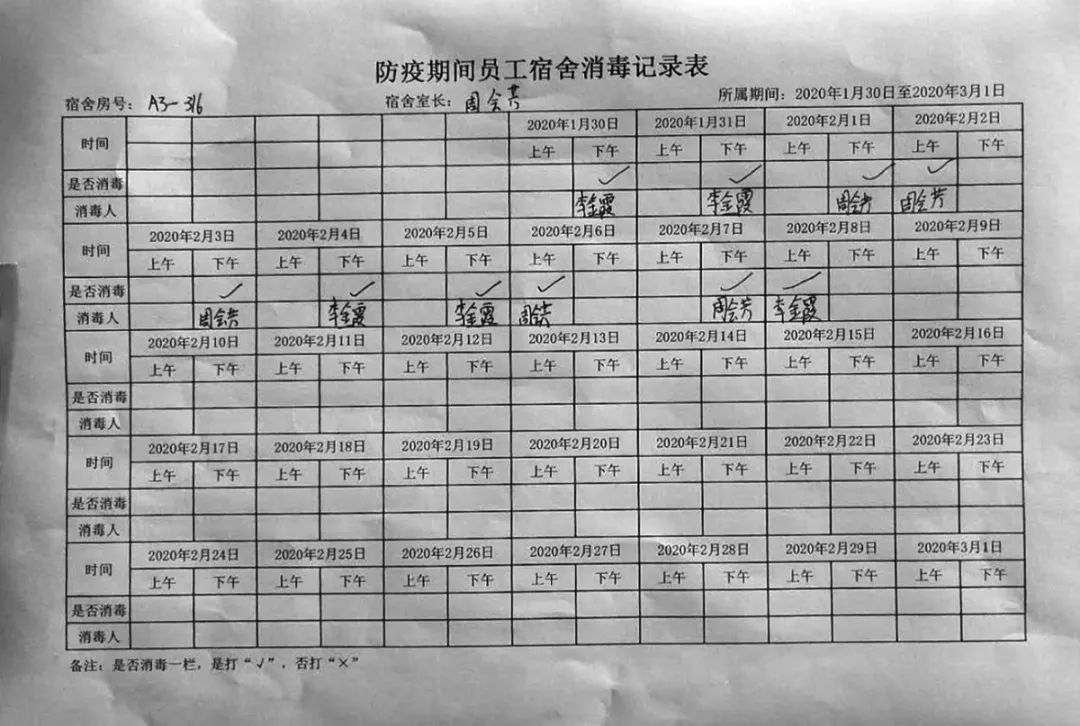 防疫期间员工宿舍消毒记录表
宿舍房号：A3-316 宿舍室长：周会芳 所属期间：2020年1月30日至2020年3月1日
时间 2020年1月30日 2020年1月31日 2020年2月1日 2020年2月2日
上午 下午 上午 下午 上午 下午 上午 下午
是否消毒 ✓ ✓ ✓ ✓
消毒人 李金霞 李金霞 周会芳 周会芳
时间 2020年2月3日 2020年2月4日 2020年2月5日 2020年2月6日 2020年2月7日 2020年2月8日 2020年2月9日
上午 下午 上午 下午 上午 下午 上午 下午 上午 下午 上午 下午 上午 下午
是否消毒 ✓ ✓ ✓ ✓ ✓ ✓
消毒人 周会芳 李金霞 李金霞 周会芳 周会芳 李金霞
时间 2020年2月10日 2020年2月11日 2020年2月12日 2020年2月13日 2020年2月14日 2020年2月15日 2020年2月16日
上午 下午 上午 下午 上午 下午 上午 下午 上午 下午 上午 下午 上午 下午
是否消毒
消毒人
时间 2020年2月17日 2020年2月18日 2020年2月19日 2020年2月20日 2020年2月21日 2020年2月22日 2020年2月23日
上午 下午 上午 下午 上午 下午 上午 下午 上午 下午 上午 下午 上午 下午
是否消毒
消毒人
时间 2020年2月24日 2020年2月25日 2020年2月26日 2020年2月27日 2020年2月28日 2020年2月29日 2020年3月1日
上午 下午 上午 下午 上午 下午 上午 下午 上午 下午 上午 下午 上午 下午
是否消毒
消毒人
备注：是否消毒一栏，是打“√”，否打“×”